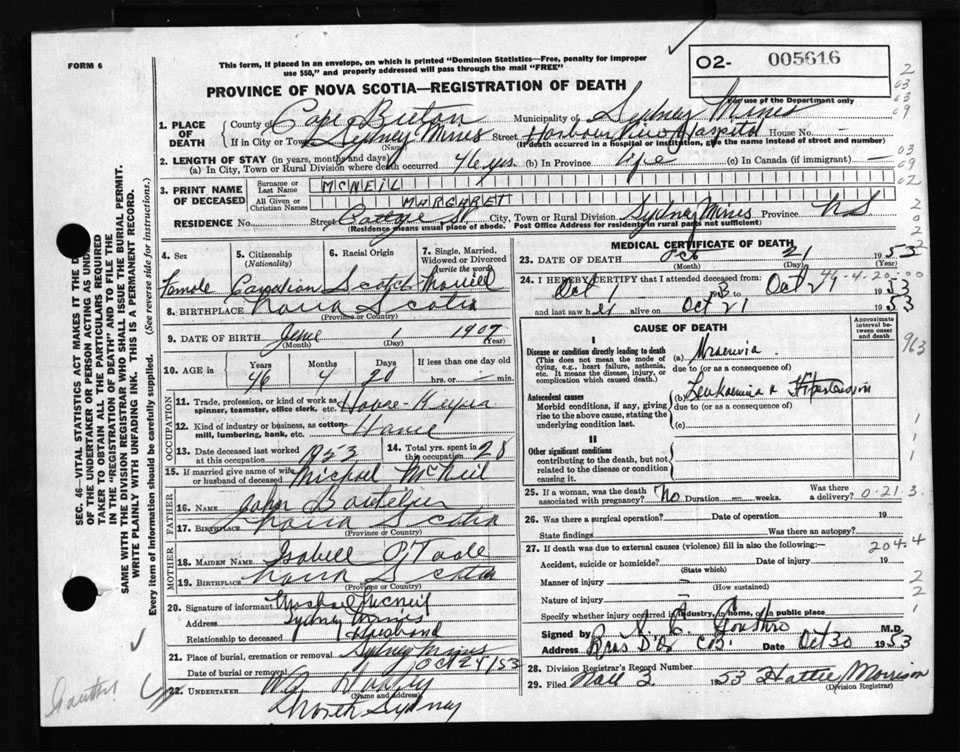 FORM 6
This form, if placed in an envelope, on which is printed "Dominion Statistics—Free, penalty for improper
use $50," and properly addressed will pass through the mail "FREE"
02- 005616
For use of the Department only
PROVINCE OF NOVA SCOTIA—REGISTRATION OF DEATH
1. PLACE OF DEATH County of Cape Breton Municipality of Sydney Mines
If in City or Town Sydney Mines Street Harbour View Hospital House No. —
(Name) (If death occurred in a hospital or institution, give the name instead of street and number)
2. LENGTH OF STAY (in years, months and days)
(a) In City, Town or Rural Division where death occurred 46 yrs (b) In Province life (c) In Canada (if immigrant) —
3. PRINT NAME OF DECEASED Surname or Last Name MCNEIL
All Given or Christian Names MARGARET
RESIDENCE No. Street Cottage St City, Town or Rural Division Sydney Mines Province N.S.
(Residence means usual place of abode. Post Office Address for residents in rural parts not sufficient)
4. Sex Female
5. Citizenship (Nationality) Canadian
6. Racial Origin Scotch
7. Single, Married, Widowed or Divorced (write the word) Married
8. BIRTHPLACE Nova Scotia
(Province or Country)
9. DATE OF BIRTH June 1 1907
(Month) (Day) (Year)
10. AGE in Years 46 Months 4 Days 20 If less than one day hrs. or — min.
OCCUPATION
11. Trade, profession or kind of work as spinner, teamster, office clerk, etc. House-Keeper
12. Kind of industry or business, as cotton mill, lumbering, bank, etc. Home
13. Date deceased last worked at this occupation 1953
14. Total yrs. spent in this occupation 28
15. If married give name of wife or husband of deceased Michael McNeil
FATHER
16. Name John Boutelier
17. Birthplace Nova Scotia
(Province or Country)
MOTHER
18. MAIDEN NAME Isabell O'Toole
19. BIRTHPLACE Nova Scotia
(Province or Country)
20. Signature of informant Michael McNeil
Address Sydney Mines
Relationship to deceased Husband
21. Place of burial, cremation or removal Sydney Mines
Date of burial or removal Oct 24/53
22. UNDERTAKER
(Name and address)
North Sydney
MEDICAL CERTIFICATE OF DEATH
23. DATE OF DEATH Oct 21 1953
(Month) (Day) (Year)
24. I HEREBY CERTIFY that I attended deceased from
Oct 1953 to Oct 21 1953
and last saw her alive on Oct 21 1953
CAUSE OF DEATH
Approximate interval between onset and death
I
Disease or condition directly leading to death
(This does not mean the mode of dying, e.g., heart failure, asthenia, etc. It means the disease, injury, or complication which caused death.)
(a) Uraemia
due to (or as a consequence of)
Antecedent causes
Morbid conditions, if any, giving rise to the above cause, stating the underlying condition last.
(b) Leukaemia & Hypertension
due to (or as a consequence of)
(c)
II
Other significant conditions
contributing to the death, but not related to the disease or condition causing it.
25. If a woman, was the death associated with pregnancy? No Duration — weeks. Was there a delivery? 0-21-3
26. Was there a surgical operation? Date of operation 19
State findings Was there an autopsy?
27. If death was due to external causes (violence) fill in also the following:— 204-4
Accident, suicide or homicide? Date of injury 19
(State which)
Manner of injury —
(How sustained)
Nature of injury —
Specify whether injury occurred in industry, in home, or in public place
Signed by M.D.
Address C.B. Date Oct 30 1953
28. Division Registrar's Record Number
29. Filed 1953 Hattie Morrison
(Division Registrar)
SEC. 46—VITAL STATISTICS ACT MAKES IT THE
OF THE UNDERTAKER OR PERSON ACTING AS
TAKER TO OBTAIN ALL THE PARTICULARS REQUIRED
IN THE "REGISTRATION OF DEATH" AND TO FILE THE
SAME WITH THE DIVISION REGISTRAR WHO SHALL ISSUE THE BURIAL PERMIT.
WRITE PLAINLY WITH UNFADING INK. THIS IS A PERMANENT RECORD.
Every item of information should be carefully supplied. (See reverse side for instructions.)